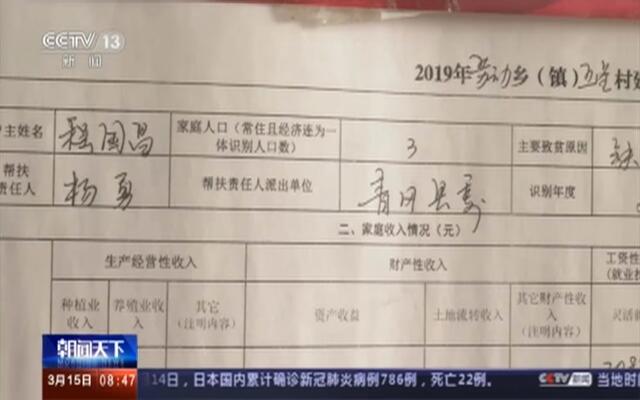 CCTV 13
新闻
2019年劳动乡（镇）五星村
户主姓名 程国昌 家庭人口（常住且经济连为一体识别人口数） 3 主要致贫原因 缺
帮扶责任人 杨勇 帮扶责任人派出单位 识别年度
二、家庭收入情况（元）
生产经营性收入 财产性收入 工资性
种植业收入 养殖业收入 其它（注明内容） 资产收益 土地流转收入 其它财产性收入（注明内容） 灵活就
朝闻天下
MORNING NEWS
3月15日 08:47 14日，日本国内累计确诊新冠肺炎病例786例，死亡22例。 CCTV新闻 当地时